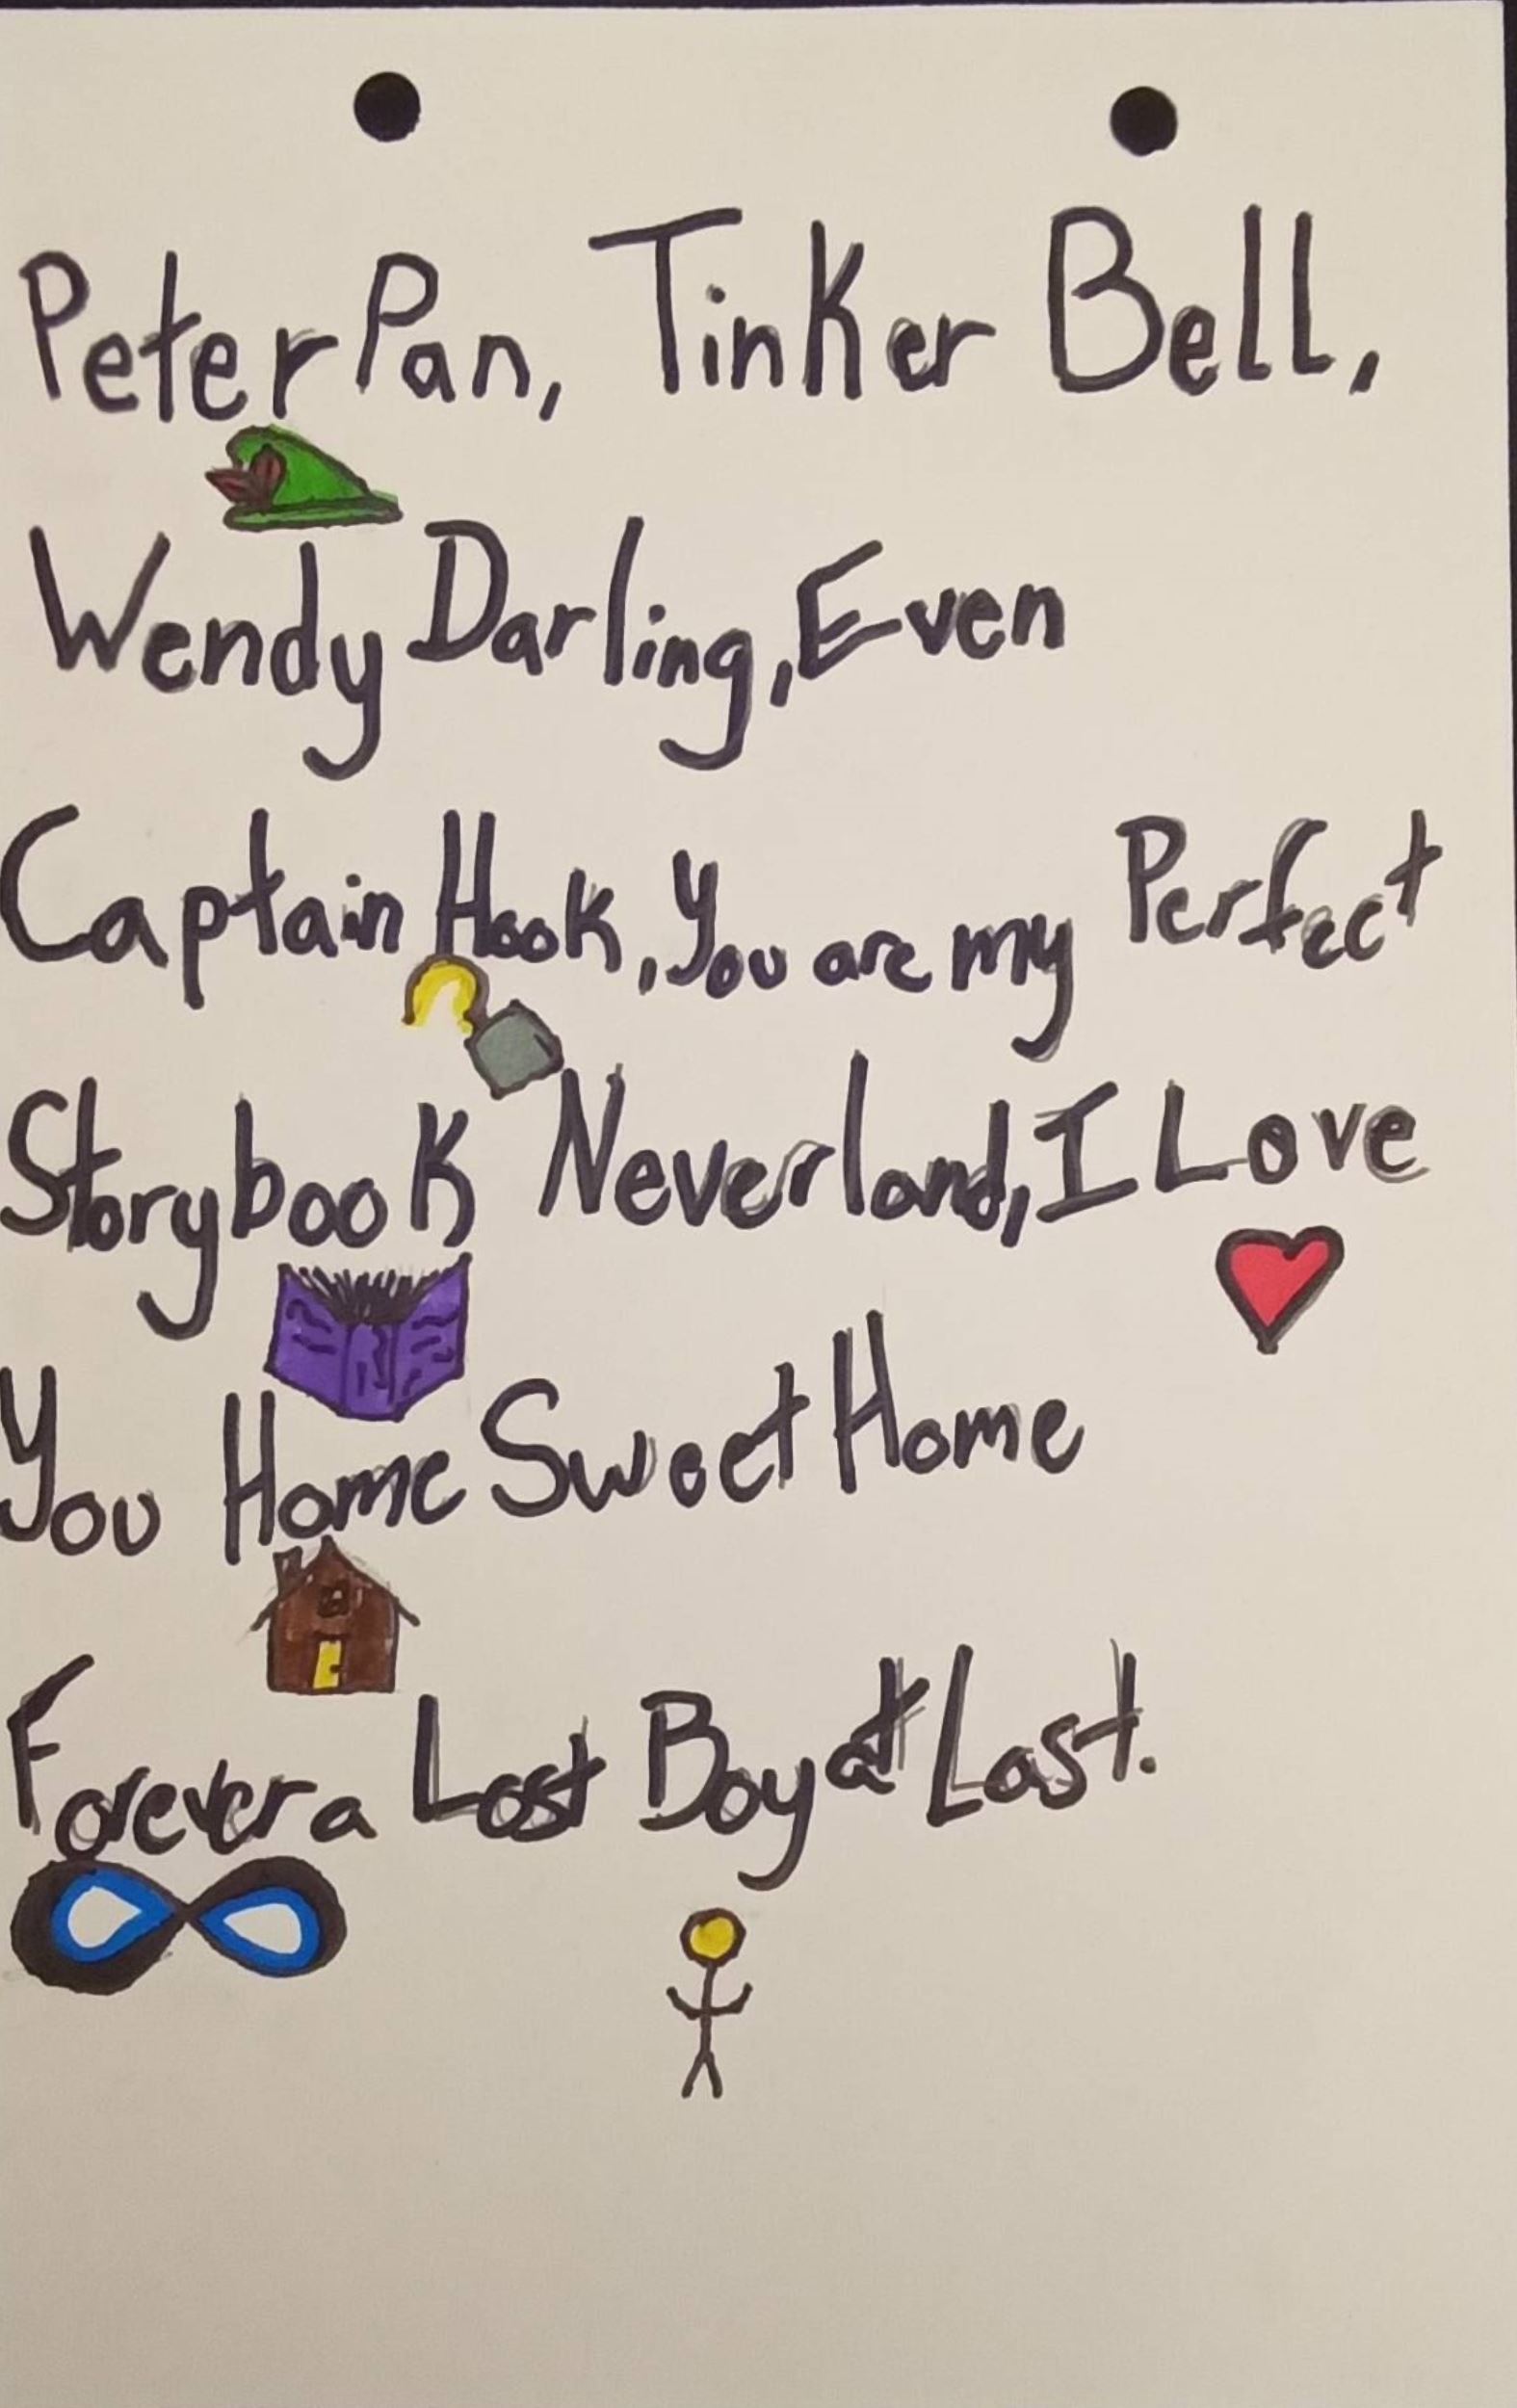 Peter Pan, Tinker Bell,
Wendy Darling, Even
Captain Hook, You are my Perfect
Storybook Neverland, I Love
You Home Sweet Home
Forever a Lost Boy at Last.